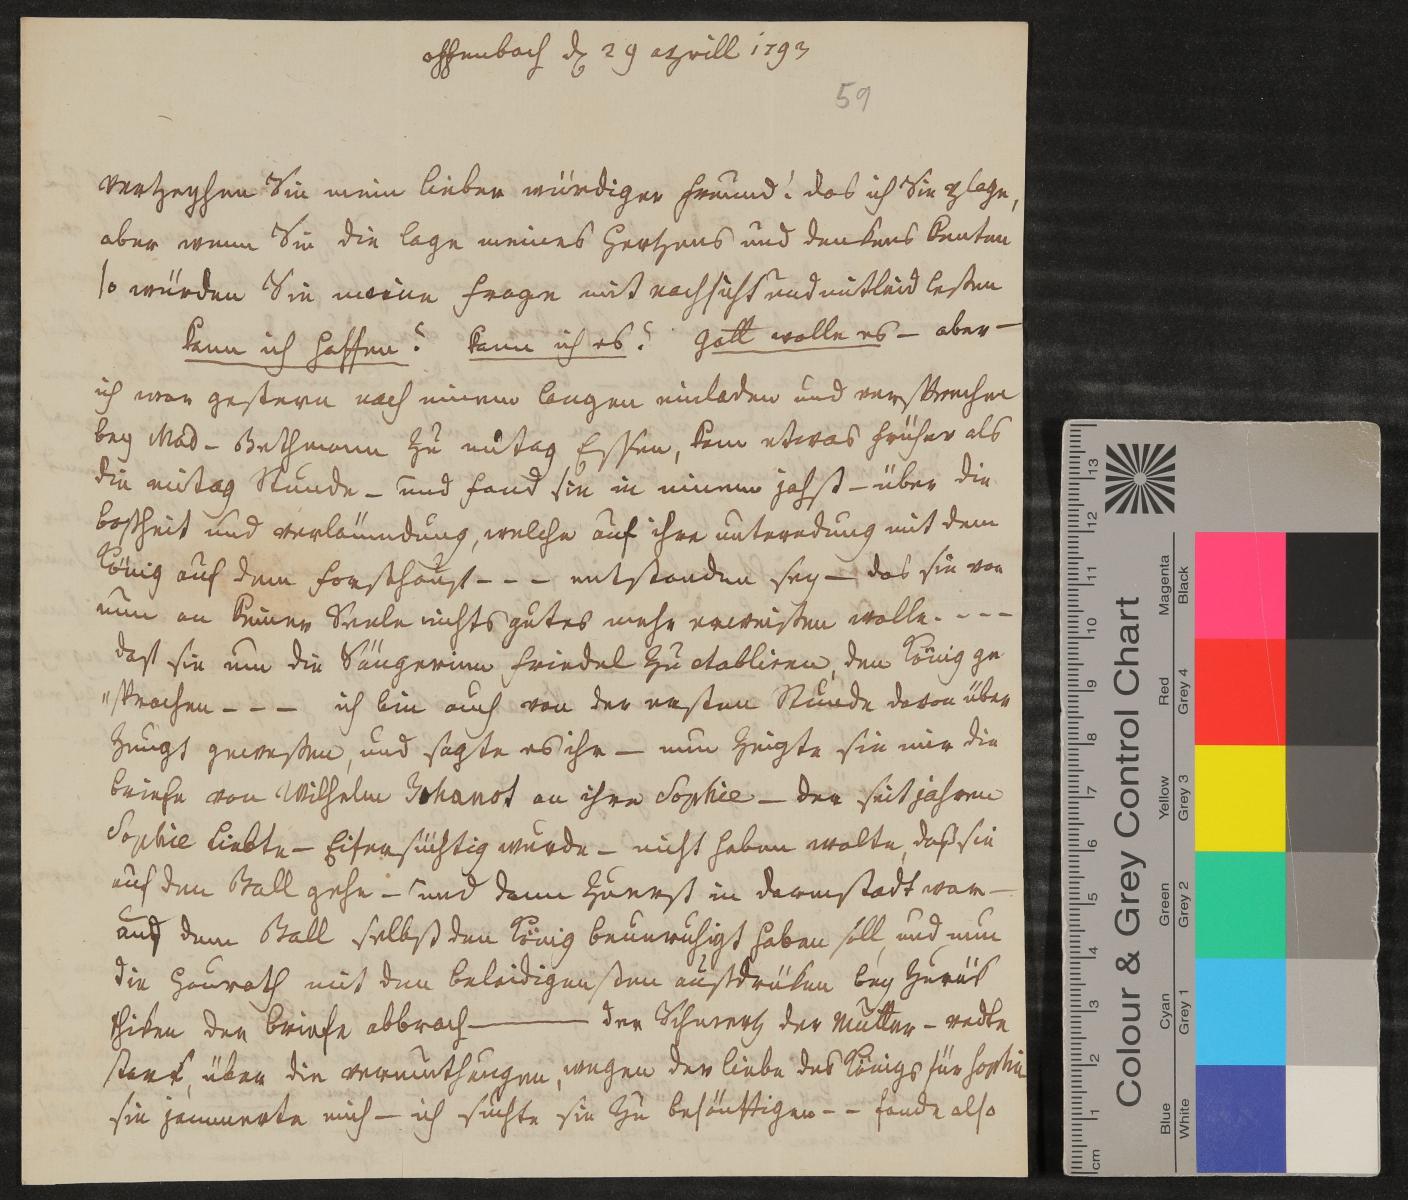 offenbach d 29 aprill 1793
59
verzeyhen Sie mein lieber würdiger freund! das ich Sie plage,
aber wenn Sie die lage meines Hertzens und denkens kenten
so würden Sie meine frage mit nachsicht und mitleid lessen
kann ich hoffen? kann ich es? gott wolle es – aber –
ich war gestern nach einem langen einladen und versprechen
bey Mad – Bethmann zu mitag Essen, kam etwas früher als
die mitag Stunde – und fand sie in einem – über die
boßheit und verläumdung, welche auf ihre unteredung mit dem
König auf dem forsthauß – – – entstanden sey – das sie von
nun an keiner Seele nichts gutes mehr erweisen wolle. – – –
daß sie um die Sängerinn friedel zu etabliren, den König ge
"sprochen – – – ich bin auch von der ersten Stunde davon über
zeugt gewessen, und sagte es ihr – nun zeigte sie mir die
briefe von Wilhelm an ihre Sophie – der seit jahren
Sophie liebte – Eifersüchtig wurde – nicht haben wolte, daß sie
auf den Ball gehe – und dann zuerst in darmstadt war –
auf dem Ball selbst den König beunruhigt haben soll, und nun
die Heurath mit den beleidigensten außdrüken bey zurük
schiken der briefe abbrach ——— der Schmertz der Mutter – redte
stark, über die vermuthungen, wegen der liebe des Königs für Sophie
sie jammerte mich – ich suchte sie zu besänftigen – – fande also
Colour & Grey Control Chart
Blue Cyan Green Yellow Red Magenta
White Grey 1 Grey 2 Grey 3 Grey 4 Black
cm 1 2 3 4 5 6 7 8 9 10 11 12 13